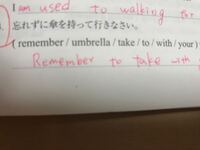 I am used to walking for
忘れずに傘を持って行きなさい。
( remember / umbrella / take / to / with / your )
Remember to take with